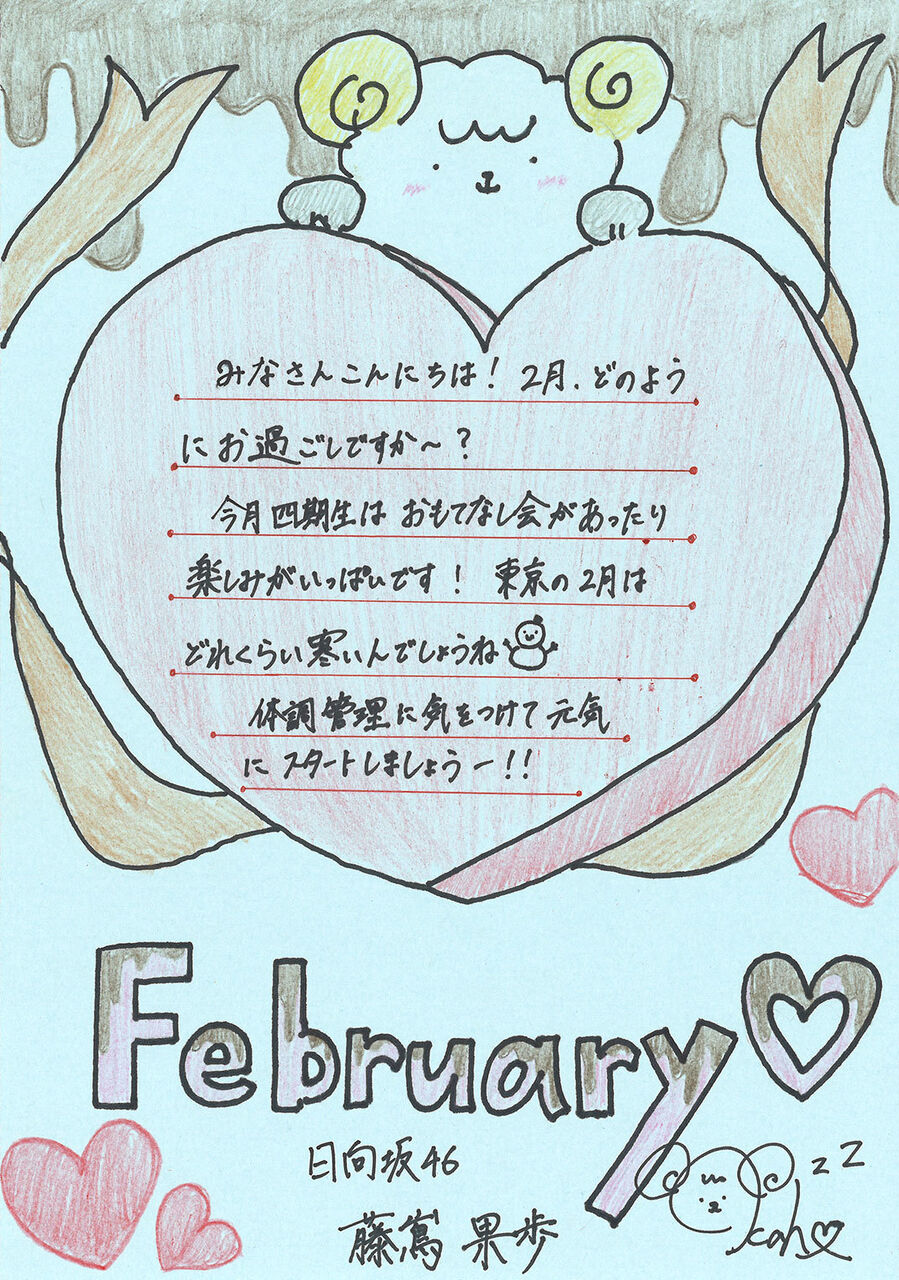 みなさんこんにちは！ 2月、どのよう
にお過ごしですか〜？
今月四期生は おもてなし会があったり
楽しみがいっぱいです！ 東京の2月は
どれくらい寒いんでしょうね
体調管理に気をつけて元気
にスタートしましょうー!!
February♡
日向坂46
藤嶌 果歩
zz
kaho